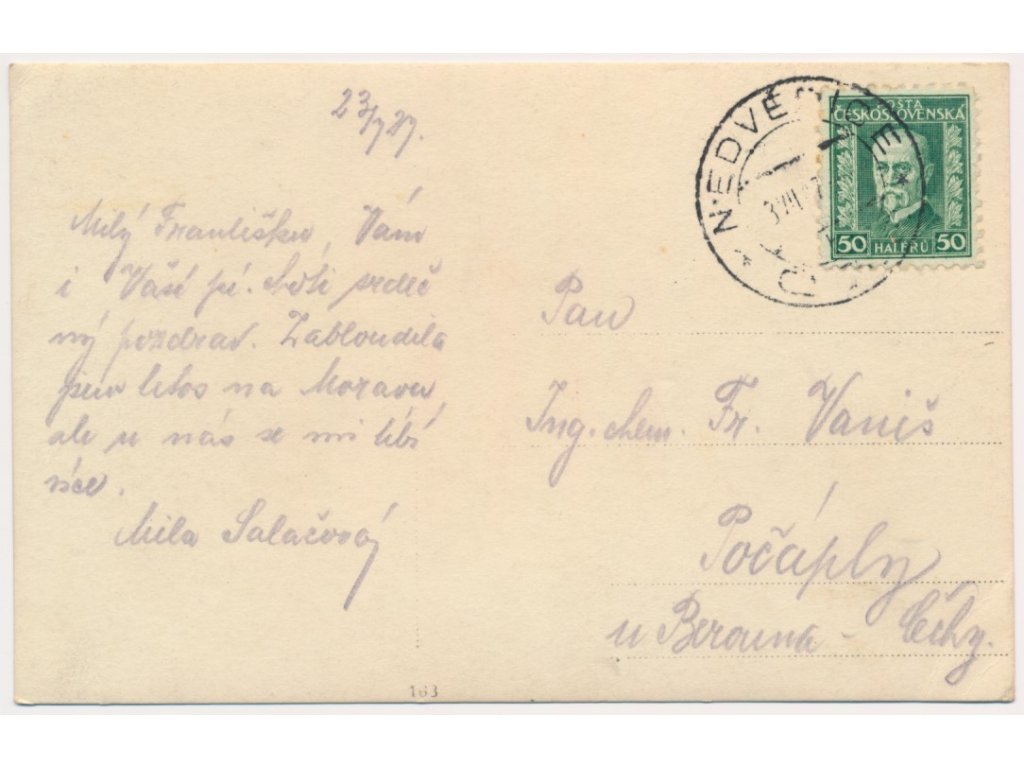 23/7 27.
Milý Františku, Vám
i Vaší pí. choti srdeč
ný pozdrav. Zabloudila
jsem letos na Moravu,
ale u nás se mi líbí
více.
Mila Salačová
POŠTA
ČESKOSLOVENSKÁ
50 HALÉŘŮ 50
NEDVĚDICE
Pan
Ing. chem. Fr. Vaniš
Počáply
u Berouna - Čechy.
163